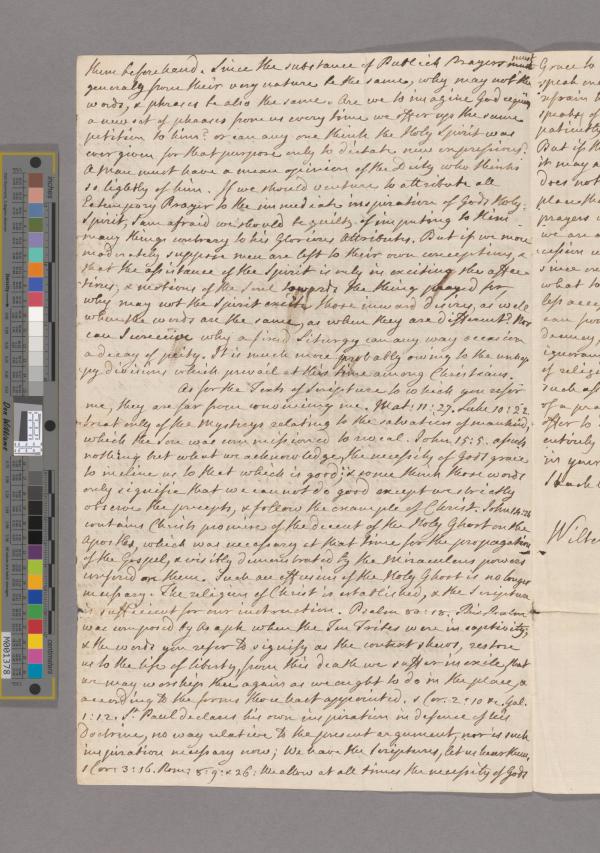 them beforehand. Since the substance of Publick Prayers must
generally from their very nature be the same, why may not the
words, & phrases be also the same. Are we to imagine God requires
a new set of phrases from us every time we offer up the same
petition to him? or can any one think the Holy Spirit was
ever given for that purpose only to dictate new expressions?
A man must have a mean opinion of the Deity who thinks
so lightly of him. If we should venture to attribute all
Extempory Prayer to the immediate inspiration of Gods Holy
Spirit, I am afraid we should be guilty of imputing to Him
many things contrary to his Glorious Attributes. But if we more
moderately suppose men are left to their own conceptions, &
that the assistance of the Spirit is only in exciting the affec-
tions, & motions of the Soul towards the thing prayed for
why may not the Spirit excite those inward desires, as well
when the words are the same, as when they are different? Nor
can I conceive why a fixed Liturgy can any way occasion
a decay of piety. It is much more probably owing to the unhap-
py divisions which prevail at this time among Christians.
As for the Texts of Scripture to which you refer
me, they are far from convincing me. Mat: 11:27. Luke 10:22
treat only of the Mysterys relating to the salvation of mankind,
which the son was commissioned to reveal. John 15:5. asserts
nothing but what we acknowledge, the necessity of Gods grace
to incline us to that which is good; & some think those words
only signifie that we cannot do good except we strictly
observe the precepts, & follow the example of Christ. John 14:26
contains Christs promise of the decent of the Holy Ghost on the
Apostles, which was necessary at that time for the propagation
of the Gospel, & visibly demonstrated by the Miraculous powers
conferred on them. Such an effusion of the Holy Ghost is no longer
necessary. The religion of Christ is established, & the Scripture
is sufficient for our instruction. Psalm 80:18. This Psalm
was composed by Asaph when the Ten Tribes were in captivity,
& the words you refer to signify as the context shews, restore
us to the life of liberty, from this death we suffer in exile that
we may worship thee again as we ought to do in the place, &
according to the forms thou hast appointed. 1 Cor. 2:10 &c. Gal.
1:12. St. Paul declares his own inspiration in defence of his
Doctrine, no way relative to the present argument, nor is such
inspiration necessary now; We have the Scriptures, let us hear them.
1 Cor: 3:16. Rom: 8:9: & 26: We allow at all times the necessity of Gods
Grace to
speak
refrain
speaks of
patiently
But if th
it may a
does not
place the
prayers
we are a
since
what to
less acce
can
ignoran
of religi
such as
of a
offer to
entirely
in your
Wilte
inches
centimeters
Don Williams
M001378